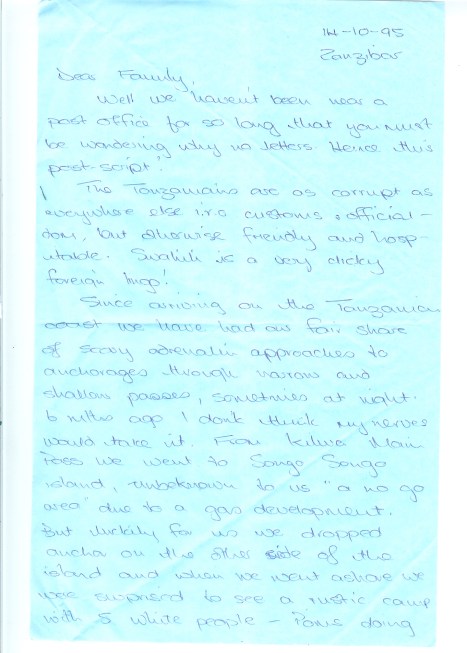 14-10-95
Zanzibar
Dear Family,
Well we haven't been near a
post office for so long that you must
be wondering why no letters. Hence this
post-script!
The Tanzanians are as corrupt as
everywhere else i.r.o customs & official-
dom, but otherwise friendly and hosp-
itable. Swahili is a very clicky
foreign lingo!
Since arriving on the Tanzanian
coast we have had our fair share
of scary adrenalin approaches to
anchorages through narrow and
shallow passes, sometimes at night.
6 mths ago I don't think my nerves
would take it. From Kilwa Main
Pass we went to Songo Songo
island, unbeknown to us "a no go
area" due to a gas development.
But luckily for us we dropped
anchor on the other side of the
island and when we went ashore we
were surprised to see a rustic camp
with 5 white people - doing